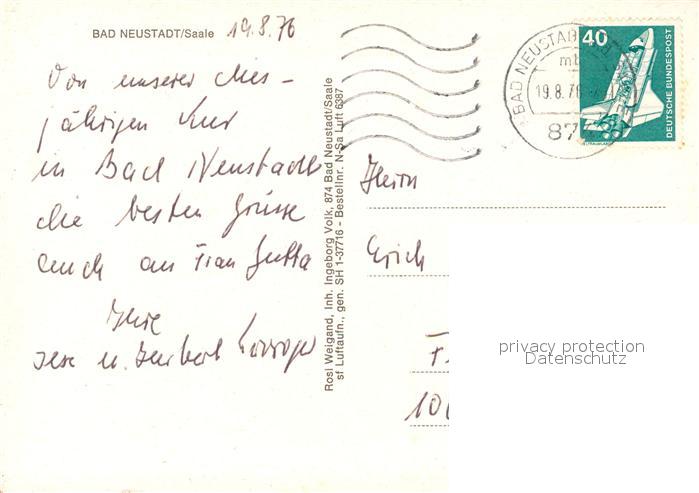 BAD NEUSTADT/Saale 19.8.76
Von unserer dies-
jährigen Kur
in Bad Neustadt
die besten Grüsse
auch an Frau Jutta
Ihre
Ilse u. Herbert
Rosl Weigand, Inh. Ingeborg Volk, 874 Bad Neustadt/Saale
sf Luftaufn., gen. SH 1-37716 - Bestellnr. N-Sa Luft 6387
BAD NEUSTADT
19.8.76
874
40
DEUTSCHE BUNDESPOST
Herrn
Erich
privacy protection
Datenschutz